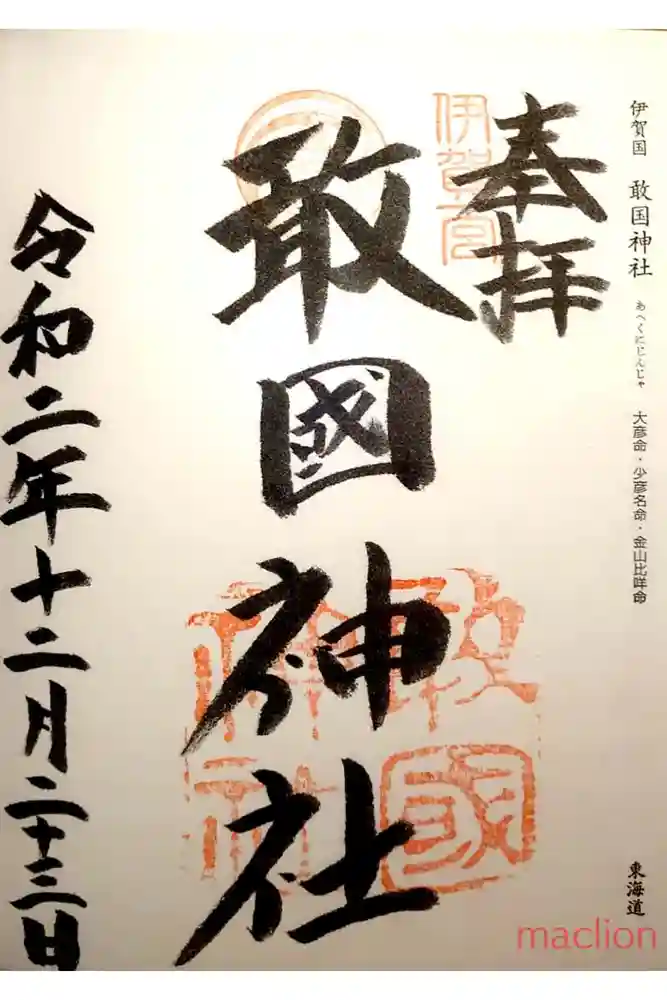 伊賀国 敢国神社 あへくにじんじゃ 大彦命・少彦名命・金山比咩命
東海道
奉拝
伊賀一宮
敢國神社
敢國神社
令和二年十二月二十三日
maclion